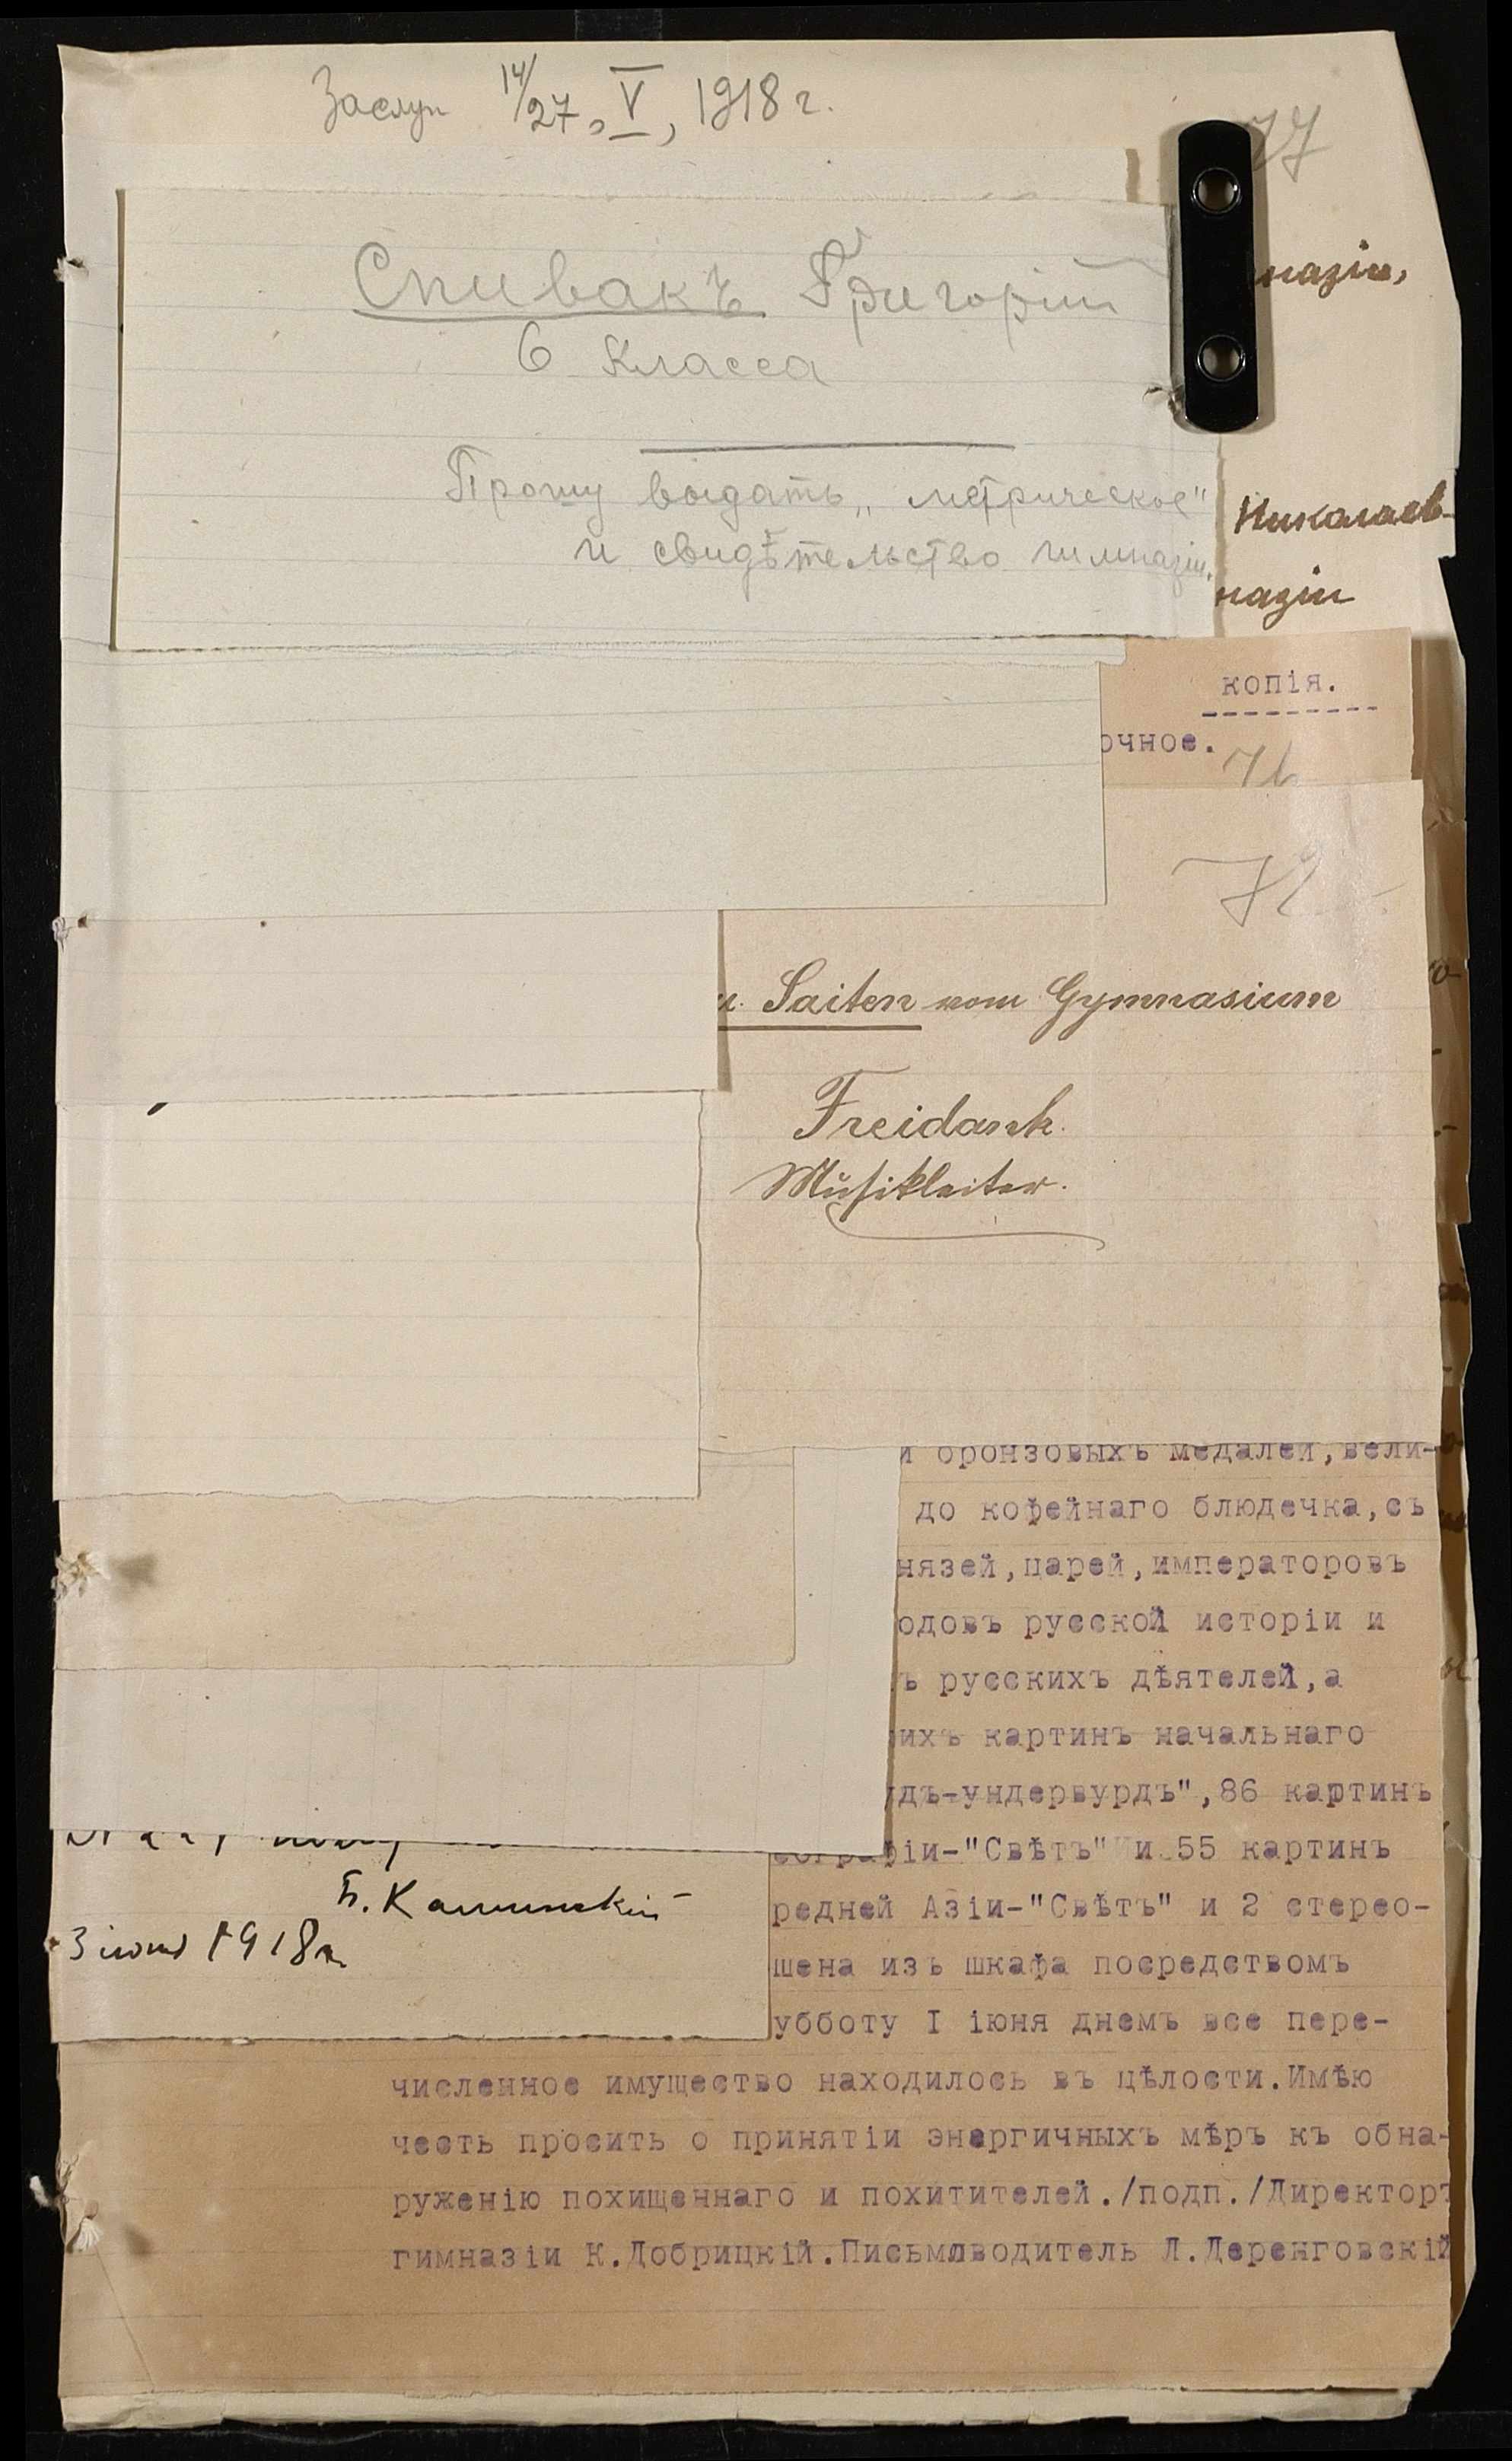 14/27, V, 1918 г.
77
Спивакъ Григорій
6 класса
Прошу выдать „метрическое"
и свидѣтельство гимназіи.
назіи,
Николаев-
назіи
копія.
очное.
u. Saiten vom Gymnasium
Freidank.
Musikleiter.
и бронзовыхъ медалей,вели-
до кофейнаго блюдечка,съ
нязей,царей,императоровъ
одовъ русской исторіи и
ъ русскихъ дѣятелей,а
ихъ картинъ начальнаго
дъ-ундервурдъ",86 картинъ
еографіи-"Свѣтъ" и 55 картинъ
редней Азіи-"Свѣтъ" и 2 стерео-
шена изъ шкафа посредствомъ
убботу I іюня днемъ все пере-
численное имущество находилось въ цѣлости.Имѣю
честь просить о принятіи энергичныхъ мѣръ къ обна-
руженію похищеннаго и похитителей./подп./Директоръ
гимназіи К.Добрицкій.Письмоводитель Л.Деренговскій
Б. Каминскій
3 іюня 1918 г.